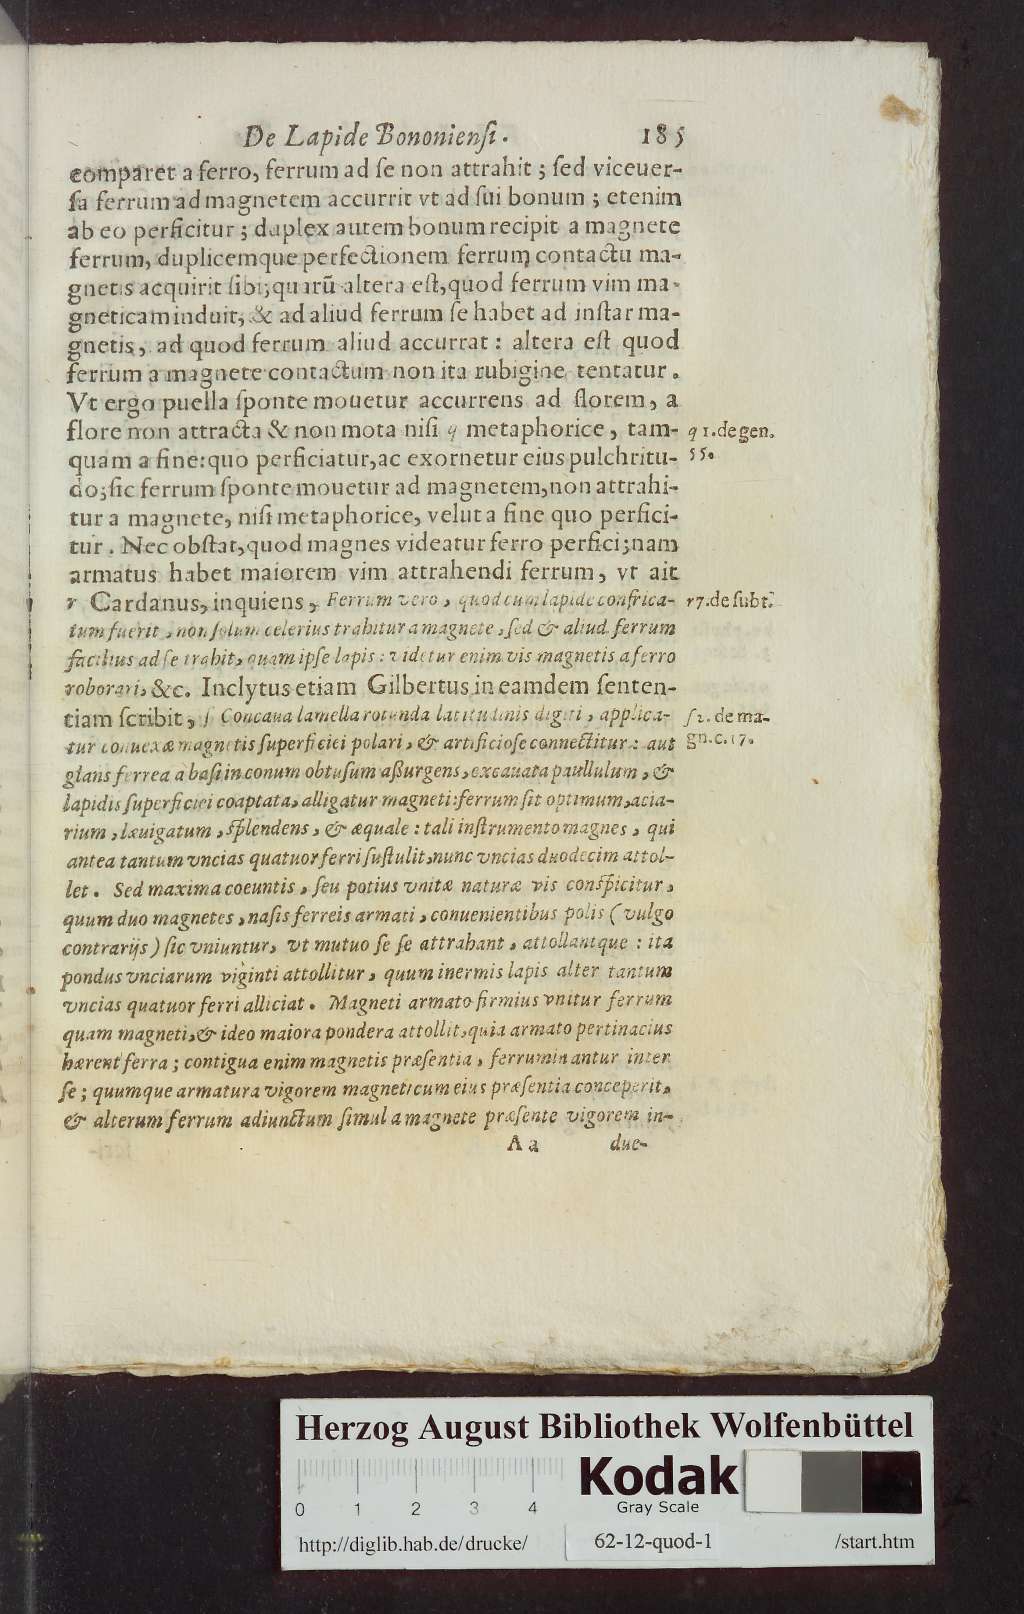 De Lapide Bononiensi. 185
comparet a ferro, ferrum ad se non attrahit; sed viceuer-
sa ferrum ad magnetem accurrit vt ad sui bonum; etenim
ab eo perficitur; duplex autem bonum recipit a magnete
ferrum, duplicemque perfectionem ferrum contactu ma-
gnetis acquirit sibi; quarū altera est, quod ferrum vim ma-
gneticam induit, & ad aliud ferrum se habet ad instar ma-
gnetis, ad quod ferrum aliud accurrat: altera est quod
ferrum a magnete contactum non ita rubigine tentatur.
Vt ergo puella sponte mouetur accurrens ad florem, a
flore non attracta & non mota nisi q metaphorice, tam-
q 1. de gen.
quam a fine: quo perficiatur, ac exornetur eius pulchritu-
55.
do; sic ferrum sponte mouetur ad magnetem, non attrahi-
tur a magnete, nisi metaphorice, velut a fine quo perfici-
tur. Nec obstat, quod magnes videatur ferro perfici; nam
armatus habet maiorem vim attrahendi ferrum, vt ait
r Cardanus, inquiens, Ferrum vero, quod cum lapide confrica-
r 7. de subt.
tum fuerit, non solum celerius trahitur a magnete, sed & aliud ferrum
facilius ad se trahit, quam ipse lapis: videtur enim vis magnetis a ferro
roborari, &c. Inclytus etiam Gilbertus in eamdem senten-
tiam scribit, s Concaua lamella rotunda latitudinis digiti, applica-
s 2. de ma-
tur conuexæ magnetis superficiei polari, & artificiose connectitur: aut
gn. c. 17.
glans ferrea a basi in conum obtusum assurgens, excauata paullulum, &
lapidis superficiei coaptata, alligatur magneti: ferrum sit optimum, acia-
rium, læuigatum, splendens, & æquale: tali instrumento magnes, qui
antea tantum vncias quatuor ferri sustulit, nunc vncias duodecim attol-
let. Sed maxima coeuntis, seu potius vnitæ naturæ vis conspicitur,
quum duo magnetes, nasis ferreis armati, conuenientibus polis (vulgo
contrarijs) sic vniuntur, vt mutuo se se attrahant, attollantque: ita
pondus vnciarum viginti attollitur, quum inermis lapis alter tantum
vncias quatuor ferri alliciat. Magneti armato firmius vnitur ferrum
quam magneti, & ideo maiora pondera attollit, quia armato pertinacius
hærent ferra; contigua enim magnetis præsentia, ferruminantur inter
se; quumque armatura vigorem magneticum eius præsentia conceperit,
& alterum ferrum adiunctum simul a magnete præsente vigorem in-
Aa due-
Herzog August Bibliothek Wolfenbüttel
0 1 2 3 4
Kodak
Gray Scale
http://diglib.hab.de/drucke/ 62-12-quod-1 /start.htm